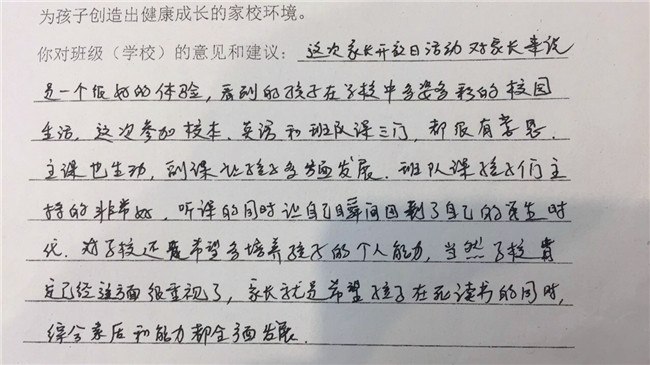 为孩子创造出健康成长的家校环境。
你对班级（学校）的意见和建议：这次家长开放日活动对家长来说
是一个很好的体验，看到的孩子在学校中多姿多彩的校园
生活，这次参加校本、英语和班队课三门，都很有意思.
主课也生动，副课让孩子多方面发展.班队课孩子们主
持的非常好，听课的同时让自己瞬间回到了自己的学生时
代.对学校还是希望多培养孩子的个人能力，当然学校肯
定已经这方面很重视了，家长就是希望孩子在死读书的同时，
综合素质和能力都全方面发展.